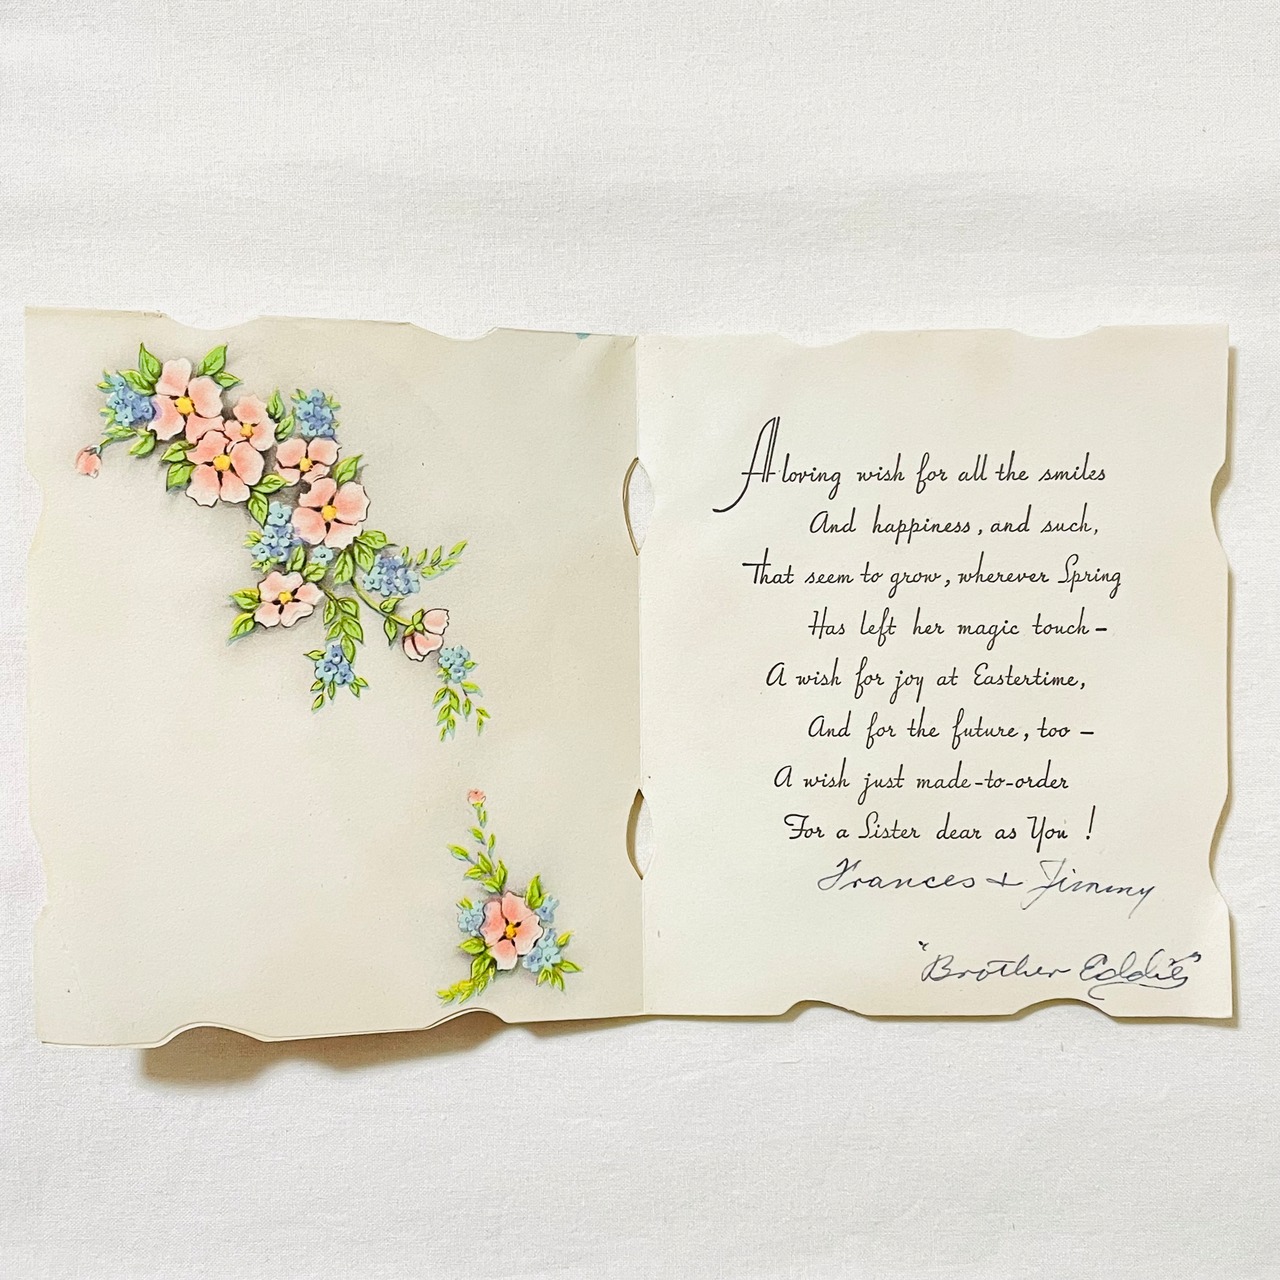 A loving wish for all the smiles
And happiness, and such,
That seem to grow, wherever Spring
Has left her magic touch –
A wish for joy at Eastertime,
And for the future, too –
A wish just made-to-order
For a Sister dear as You!
Frances + Jimmy
"Brother Eddie"